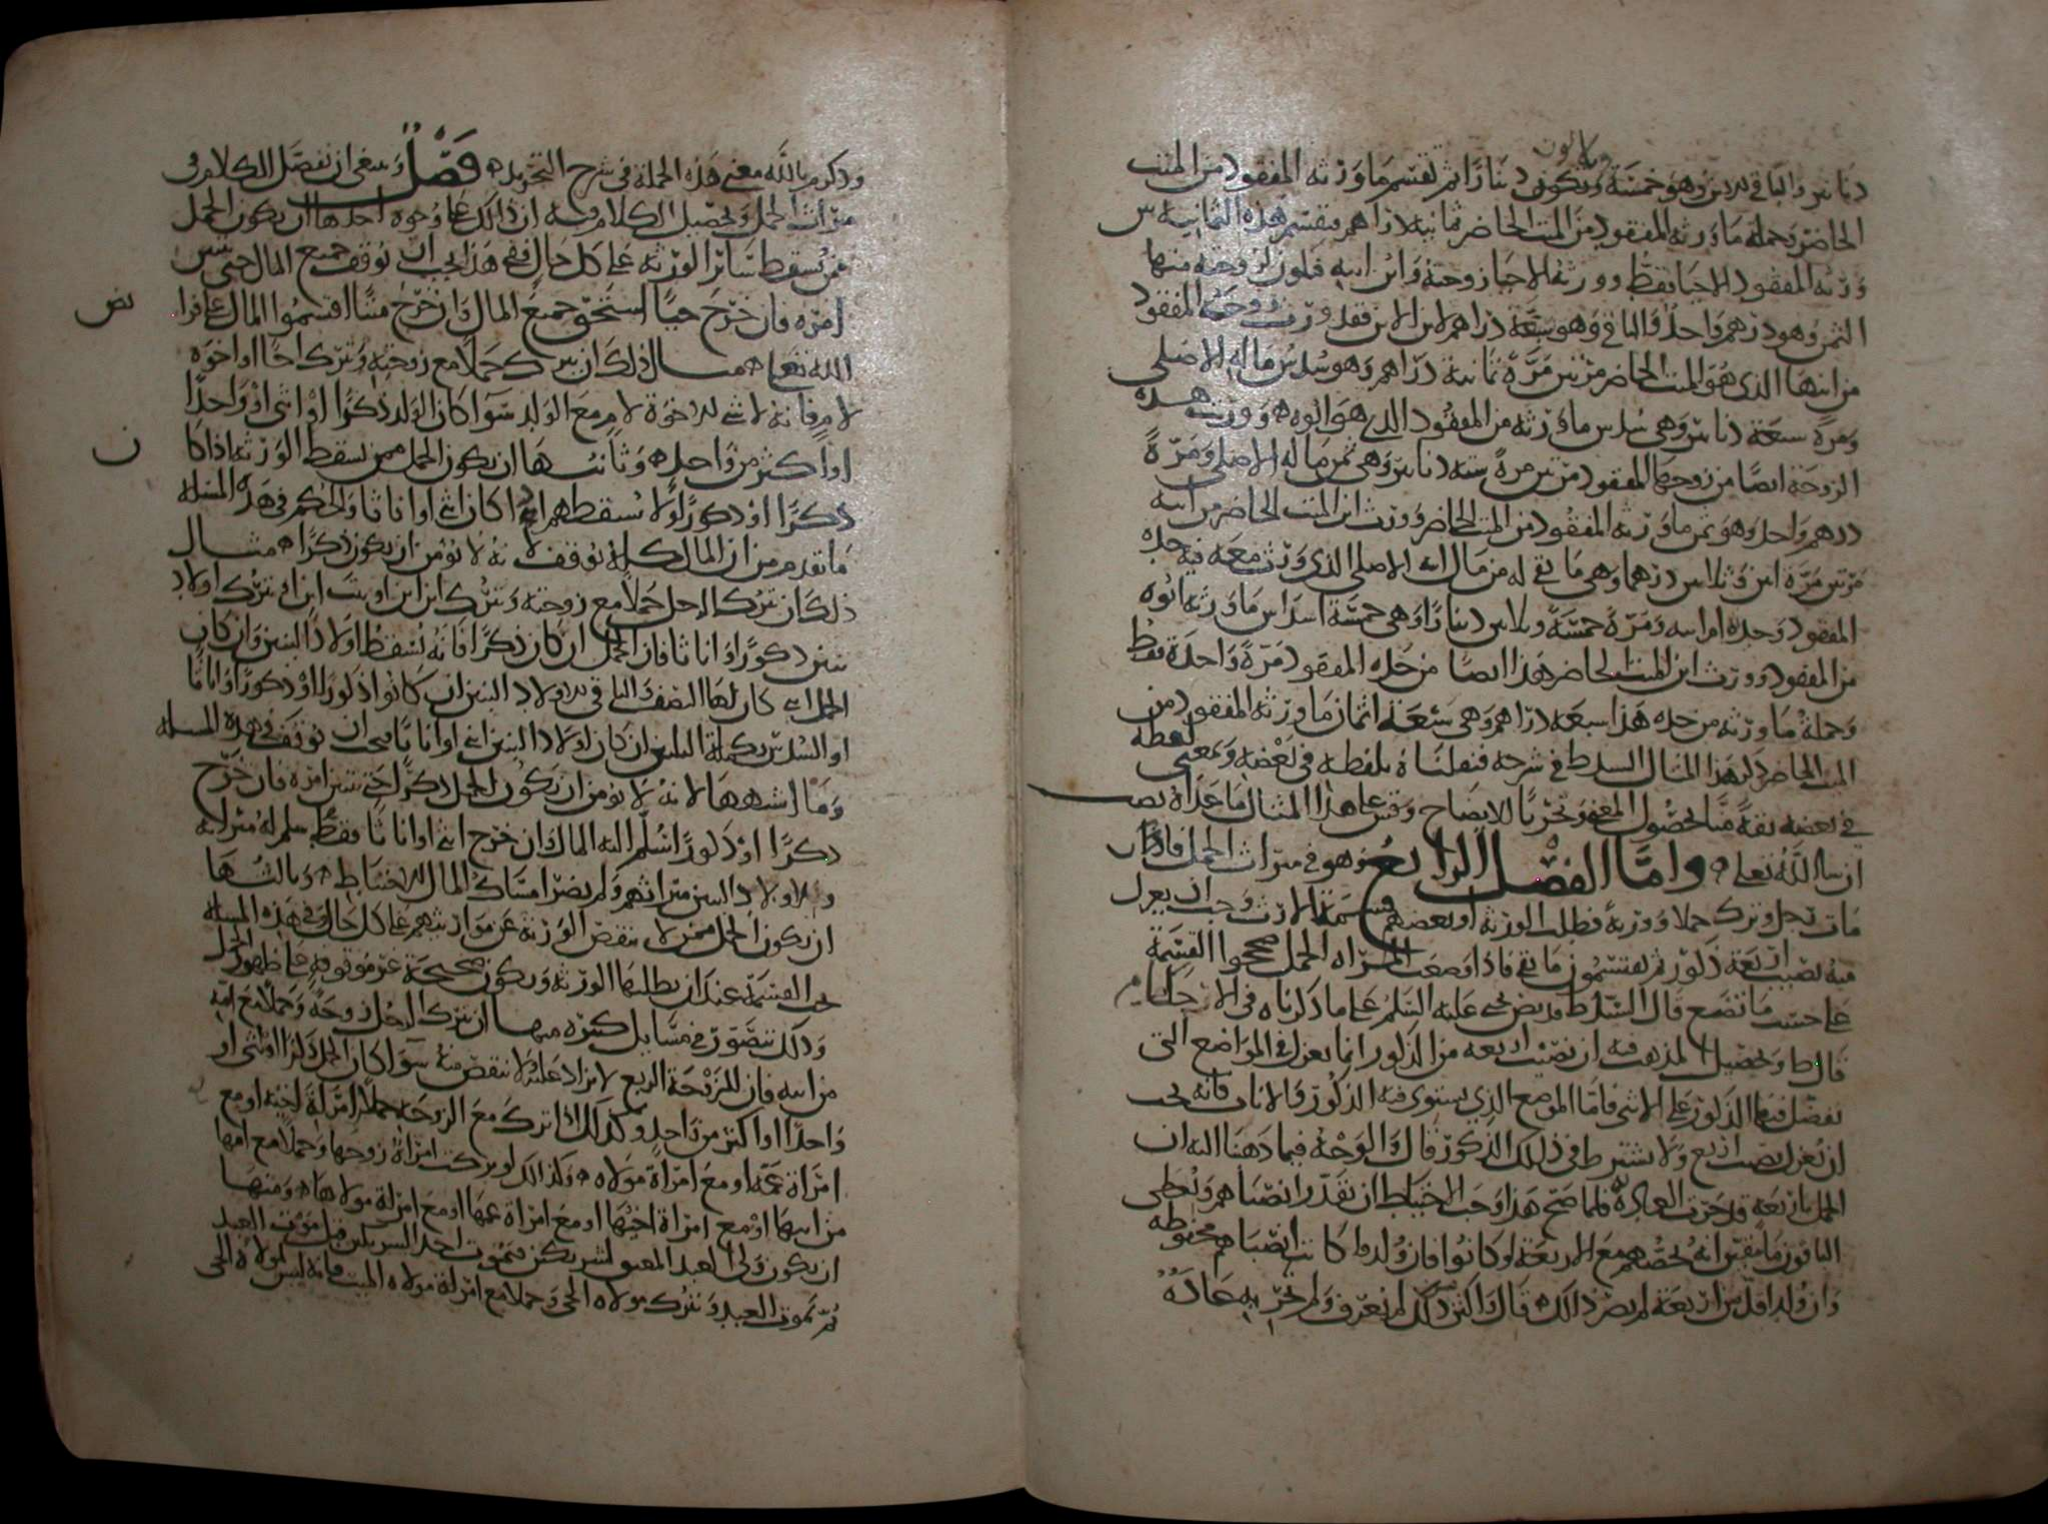 دنانير والباقي للابن وهو خمسة وثلاثون دينارا ثم تقسم ما ورثه المفقود من الميت
الحاضر وجملة ما ورثه المفقود من الميت الحاضر ثمانية دراهم فتقسم هذه الثمانية بين
ورثة المفقود الاحيا فقط وورثته الاحيا زوجته وابن ابنه فيكون لزوجته منها
الثمن وهو درهم واحد والباقي وهو سبعة دراهم لابن الابن فقد ورثت زوجة المفقود
من ابنها الذي هو الميت الحاضر مرتين مرة ثمانية دراهم وهو سدس ماله الاصلي
ومرة سبعة دنانير وهي سدس ما ورثه من المفقود الذي هو ابوه وورثت هذه
الزوجة ايضا من زوجها المفقود مرتين مرة ستة دنانير وهي ثمن ماله الاصلي ومرة
درهم واحد وهو ثمن ما ورثه المفقود من الميت الحاضر وورث ابن الميت الحاضر من ابيه
مرتين مرة اثنين وثلاثين درهما وهي ما بقي له من مال ابيه الاصلي الذي ورث معه فيه جده
المفقود وجدته ام ابيه ومرة خمسة وثلاثين دينارا وهي خمسة اسداس ما ورثه ابوه
من المفقود وورث ابن الميت الحاضر هذا ايضا من جده المفقود مرة واحدة فقط
وجملة ما ورثه من جده هذا سبعة دراهم وهي سبعة اثمان ما ورثه المفقود من
الميت الحاضر ذكر هذا المثال السيد ط في شرحه فنقلناه بلفظه في بعضه وبمعنى لفظه
في بعضه ثقة منا لحصول المعنى وتحريا للايضاح وقس على هذا المثال ما عداه تصب
ان شا الله تعالى واما الفصل الرابع وهو في ميراث الحمل فاذا كان
مات رجل وترك حملا وورثة فطلب الورثة او بعضهم قسمة الارث وجب ان يعزل
منه نصيب اربعة ذكور ثم يقتسمون ما بقي فاذا وضعت المراة الحمل صححوا القسمة
على حسب ما تضع قال السيد ط وقد نص يحيى عليه السلم على ما ذكرناه في الاحكام
قال ط وتحصيل المذهب فيه ان نصيب اربعة من الذكور انما يعزل في المواضع التي
يفضل فيها الذكور على الانثى فاما الموضع الذي يستوي فيه الذكور والاناث فانه يجب
ان يعزل نصيب اربع ولا يشترط في ذلك الذكور قال والوجه فيما ذهبنا اليه ان
الحمل باربعة قد جرت العادة فلما صح هذا وجب الاحتياط ان تقدر انصباهم ويعطى
الباقون ما تيقن انه يخصهم مع الاربعة لو كانوا فان ولدوا كانت انصباهم محفوظة
وان ولد اقل من اربعة لم يضر ذلك قال واكثر من ذلك لم نعرف ولم تجر به عادة
وذكر بالله معنى هذه الجملة في شرح التحرير فصل وينبغي ان نفصل الكلام في
ميراث الحمل وتحصيل الكلام فيه ان ذلك على وجوه احدها ان يكون الحمل
ممن يسقط سائر الورثة على كل حال ففي هذا يجب ان نوقف جميع المال حتى يتبين
امره فان خرج حيا استحق جميع المال وان خرج ميتا اقتسموا المال على فرائض
الله تعالى مثال ذلك ان يترك حملا مع زوجته ويترك اخا او اخوة
لام فانه لا شي للاخوة لام مع الولد سوا كان الولد ذكرا او انثى او واحدا
او اكثر من واحد وثانيها ان يكون الحمل ممن يسقط الورثة اذا كان
ذكرا او ذكورا ولا يسقطهم اذا كان انثى او اناثا والحكم في هذه المسلة
ما تقدم من ان المال كله يوقف لانه لا يؤمن ان يكون ذكرا مثال
ذلك ان يترك الرجل حملا مع زوجته ويترك ابن ابن او بنت ابن او يترك اولاد
بنين ذكورا واناثا فان الحمل ان كان ذكرا فانه يسقط اولاد البنين وان كان
الحمل انثى كان لها النصف والباقي لاولاد البنين ان كانوا ذكورا او ذكورا واناثا
او السدس تكملة الثلثين ان كان اولاد البنين انثى او اناثا فيجب ان توقف في هذه المسلة
وما اشبهها لانه لا يؤمن ان يكون الحمل ذكرا حتى يتبين امره فان خرج
ذكرا او ذكورا سلم اليه المال وان خرج انثى او اناثا فقط سلم له ميراثه
ولاولاد البنين ميراثهم ولم يضر امساك المال للاحتياط وثالثها
ان يكون الحمل ممن لا ينقص الورثة عن مواريثهم على كل حال وفي هذه المسلة
تجب القسمة عند ان يطلبها الورثة ويكون صحيحة غير موقوفة على ظهور الحمل
وذلك يتصور في مسايل كثيرة منها ان يترك الرجل زوجة وحملا مع امه
من ابيه فان للزوجة الربع لا يزاد عليه ولا ينقص منه سوا كان الحمل ذكرا او انثى او
واحدا او اكثر من واحد وكذلك اذا ترك مع الزوجة حملا مع امراة اخيه او مع
امراة عمه او مع امراة مولاه وكذلك لو تركت امراة زوجها وحملا مع امها
من ابيها او مع امراة اخيها او مع امراة عمها او مع امراة مولاها ومنها
ان يكون ولى العبد المعتق لشريكين فيموت احد الشريكين قبل موت العبد
ثم يموت العبد ويترك مولاه الحي وحملا مع امراة مولاه الميت فانه ليس لمولاه الحي